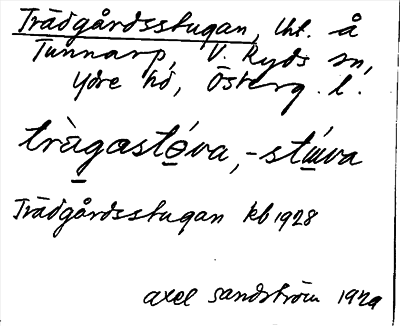 Trädgårdsstugan, lht. å
Tunnarp, V. Ryds sn,
Ydre hd, Österg. l.
tràgastǿva, -stúva
Trädgårdsstugan kb 1928
Axel Sandström 1929